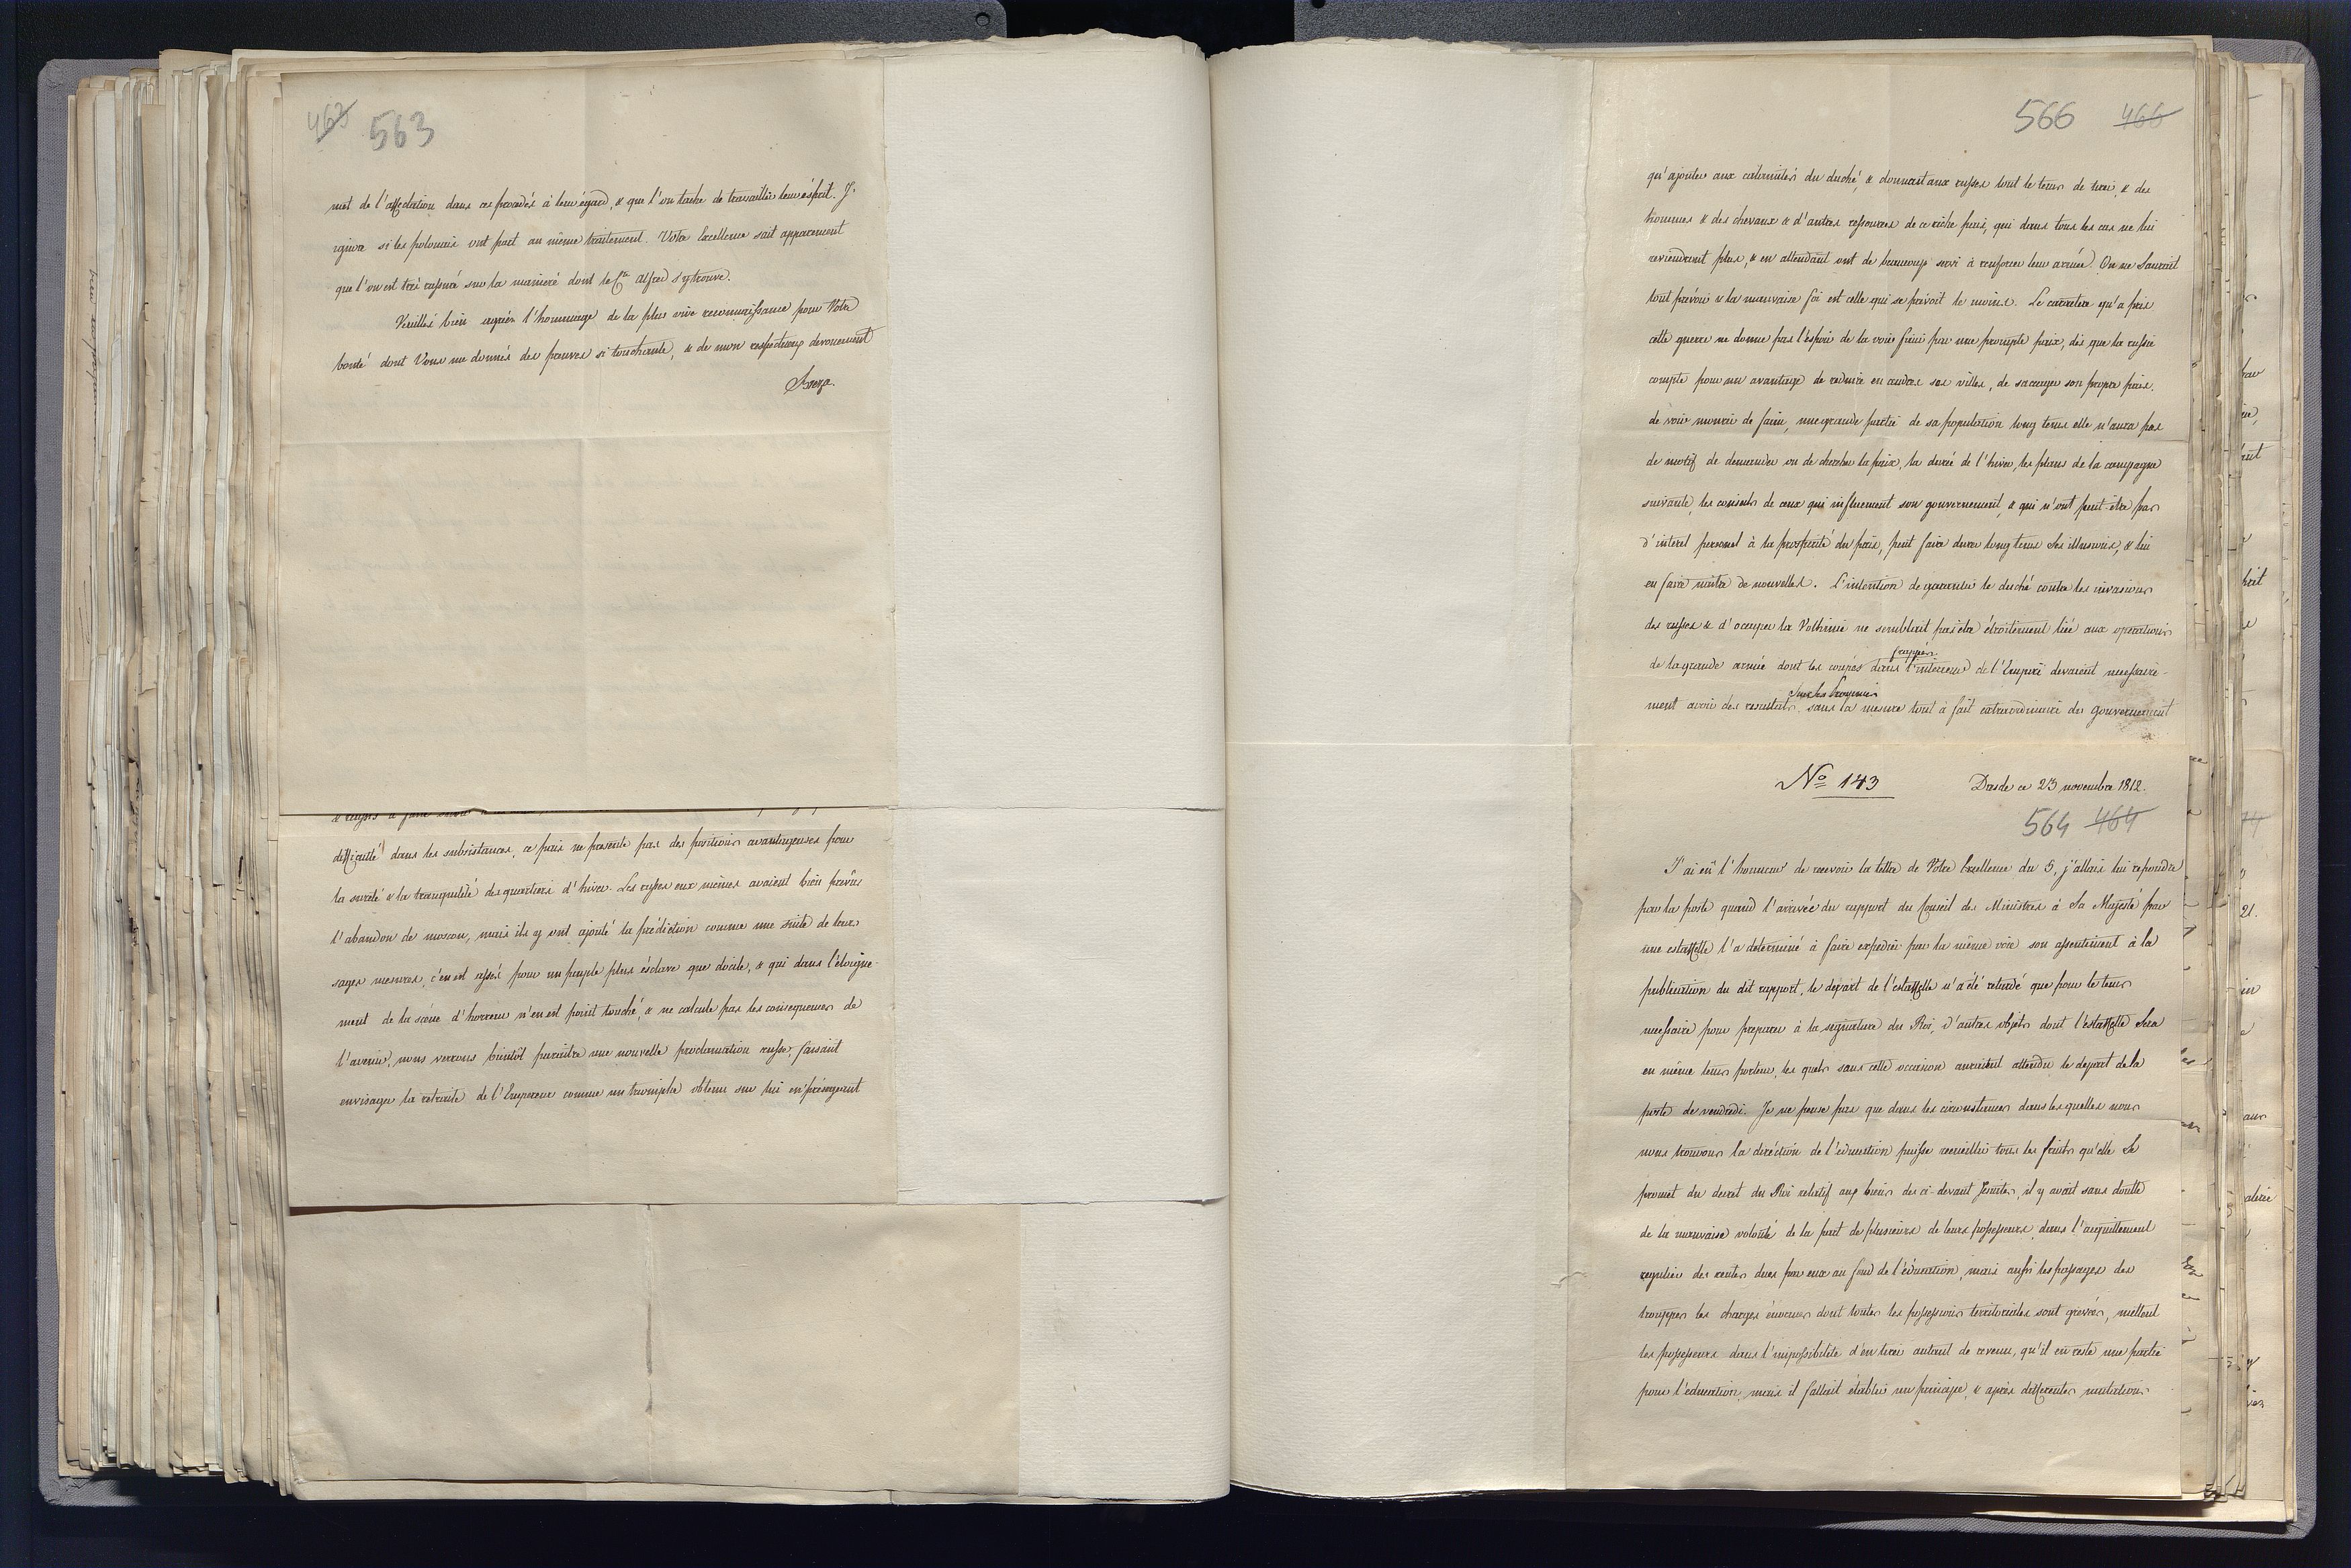 463 563
met de l'affectation dans ces procedés à leur égard, & que l'on tache de travailler leur ésprit. J'
ignore si les polonais ont part au même traitement. Votre Excellence sait apparement
que l'on est très rassuré sur la manieré dont le Cte Alfred s'y trouve.
Veuillés bien agréer l'hommage de la plus vive reconnaissance pour Votre
bonté dont Vous me donnés des preuves si touchante, & de mon respectueux devouement
Breza.
difficulté dans les subsistances, ce pais ne presente pas des positions avantageuses pour
la sureté & la tranquilité des quartiers d'hiver. Les russes eux mêmes avaient bien prévûs
l'abandon de moscou, mais ils y ont ajouté la prédiction comme une suite de leurs
sages mesures, c'en est assés pour un peuple plus ésclave que docile, & qui dans l'éloigne-
ment de la scéne d'horreur n'en est point touché, & ne calcule pas les consequences de
l'avenir, nous verrons bientôt paraitre une nouvelle proclamation russe, faisant
envisager la retraite de l'Empereur comme un triomphe obtenu sur lui en présageant
566 466
qu'ajouter aux calamités du duché, & donnerait aux russes tout le tems de tirer, & des
hommes & des chevaux & d'autres ressources de ce riche pais, qui dans tous les cas ne lui
reviendront plus, & en attendant ont de beaucoup servi à renforcer leur armée. On ne saurait
tout prévoir & la mauvaise foi est celle qui se prévoit le moins. Le caractere qu'a pris
cette guerre ne donne pas l'éspoir de la voir finir par une prompte paix, dès que la russie
compte pour un avantage de reduire en cendres ses villes, de saccager son propre pais,
de voir mourir de faim, une grande partie de sa population long tems elle n'aura pas
de motif de demander ou de chercher la paix, la durée de l'hiver, les plans de la campagne
suivante, les conseils de ceux qui influencent son gouvernement, & qui n'ont peut-être pas
d'interet personel à la prosperité du pais, peut faire durer long tems ses illusions, & lui
en faire naitre de nouvelles. L'intention de garantir le duché contre les invasions
des russes & d'occuper la Volhinie ne semblait pas etre étroitement liée aux operations
frappés
de la grande armée dont les coupés dans l'interieur de l'Empire devaient necessaire-
sur les Provinces
ment avoir des resultats sans la mesure tout à fait extraordinaire du gouvernement
No 143 Dresde ce 23 novembre 1812.
564 464
J'ai eû l'honneur de recevoir la lettre de Votre Excellence du 5, j'allais lui repondre
par la poste quand l'arrivée du rapport du Conseil des Ministres à Sa Majesté par
une estaffette l'a determiné à faire expedier par la même voie son assentiment à la
publication du dit rapport, le depart de l'estaffette n'a été retardé que pour le tems
necessaire pour preparer à la signature du Roi, d'autres objets dont l'estaffette sera
en même tems porteur, les quels sans cette occasion auraient attendu le depart de la
poste de vendredi. Je ne pense pas que dans les circonstances dans les quelles nous
nous trouvons la diréction de l'education puisse recueillir tous les fruits qu'elle se
promet du decret du Roi relatif aux biens des ci-devant Jesuites, il y avait sans doutte
de la mauvaise volonté de la part de plusieurs de leurs possesseurs, dans l'acquittement
regulier des rentes dues par eux au fond de l'éducation, mais aussi les passages des
trouppes les charges énormes dont toutes les possessions territoriales sont grévées, mettent
les possesseurs dans l'impossibilité d'en tirer autant de revenu, qu'il en reste une partie
pour l'education, mais il fallait établir un principe, & après differentes mutations